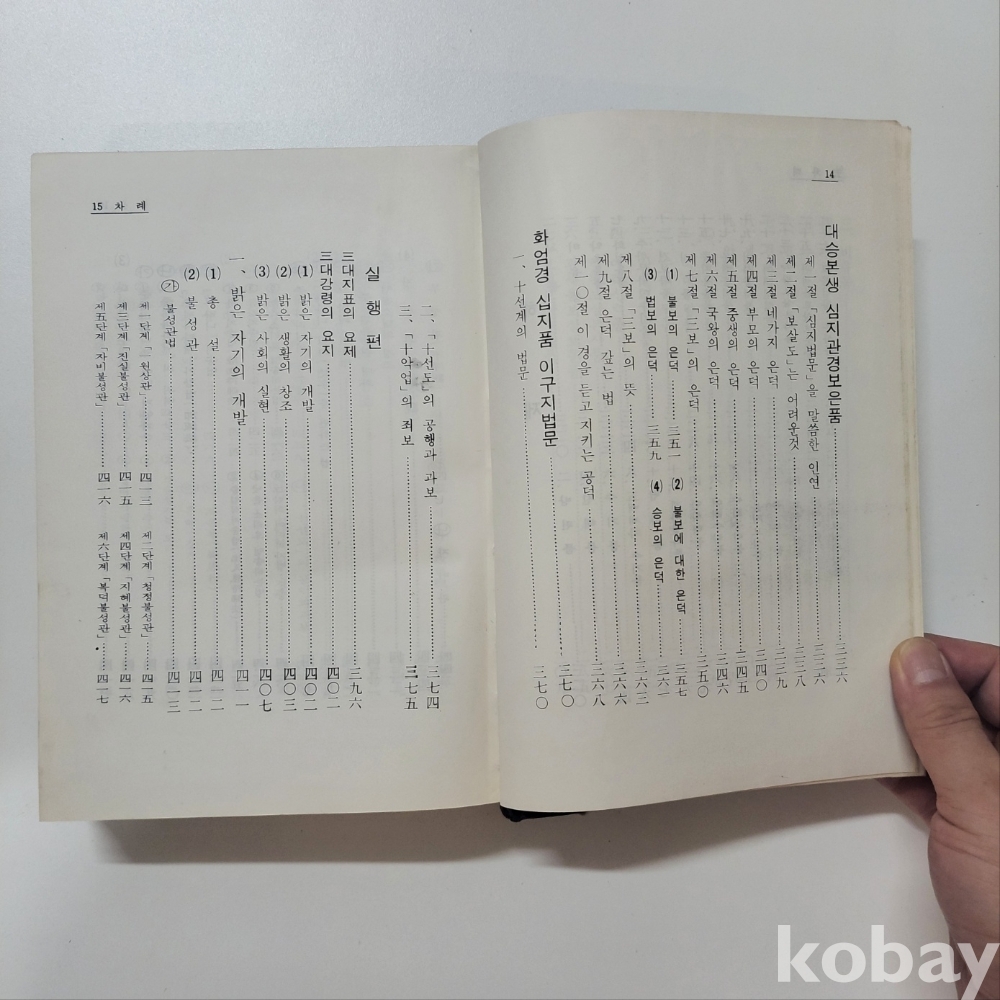 14
대승본생 심지관경보은품……三三六
제一절 「심지법문」을 말씀한 인연……三三六
제二절 「보살도」는 어려운것……三三八
제三절 네가지 은덕……三三九
제四절 부모의 은덕……三四〇
제五절 중생의 은덕……三四五
제六절 국왕의 은덕……三四五
제七절 「三보」의 은덕……三五〇
(1) 불보의 은덕……三五一 (2) 불보에 대한 은덕……三五七
(3) 법보의 은덕……三五九 (4) 승보의 은덕……三六一
제八절 「三보」의 뜻……三六三
제九절 은덕 갚는 법……三六六
제一〇절 이 경을 듣고 지키는 공덕……三六八
화엄경 십지품 이구지법문……三七〇
一、十선계의 법문……三七〇
15 차 례
二、「十선도」의 공행과 과보……三七四
三、「十악업」의 죄보……三七五
실 행 편
三대지표의 요제……三九六
三대강령의 요지……四〇二
(1) 밝은 자기의 개발……四〇二
(2) 밝은 생활의 창조……四〇三
(3) 밝은 사회의 실현……四〇七
一、밝은 자기의 개발……四一一
(1) 총 설……四一二
(2) 불성관……四一二
㉮ 불성관법……四一三
제一단계 「一원상관」……四一三 제二단계 「청정불성관」……四一五
제三단계 「진실불성관」……四一五 제四단계 「지혜불성관」……四一六
제五단계 「자비불성관」……四一六 제六단계 「복덕불성관」……四一七
kobay